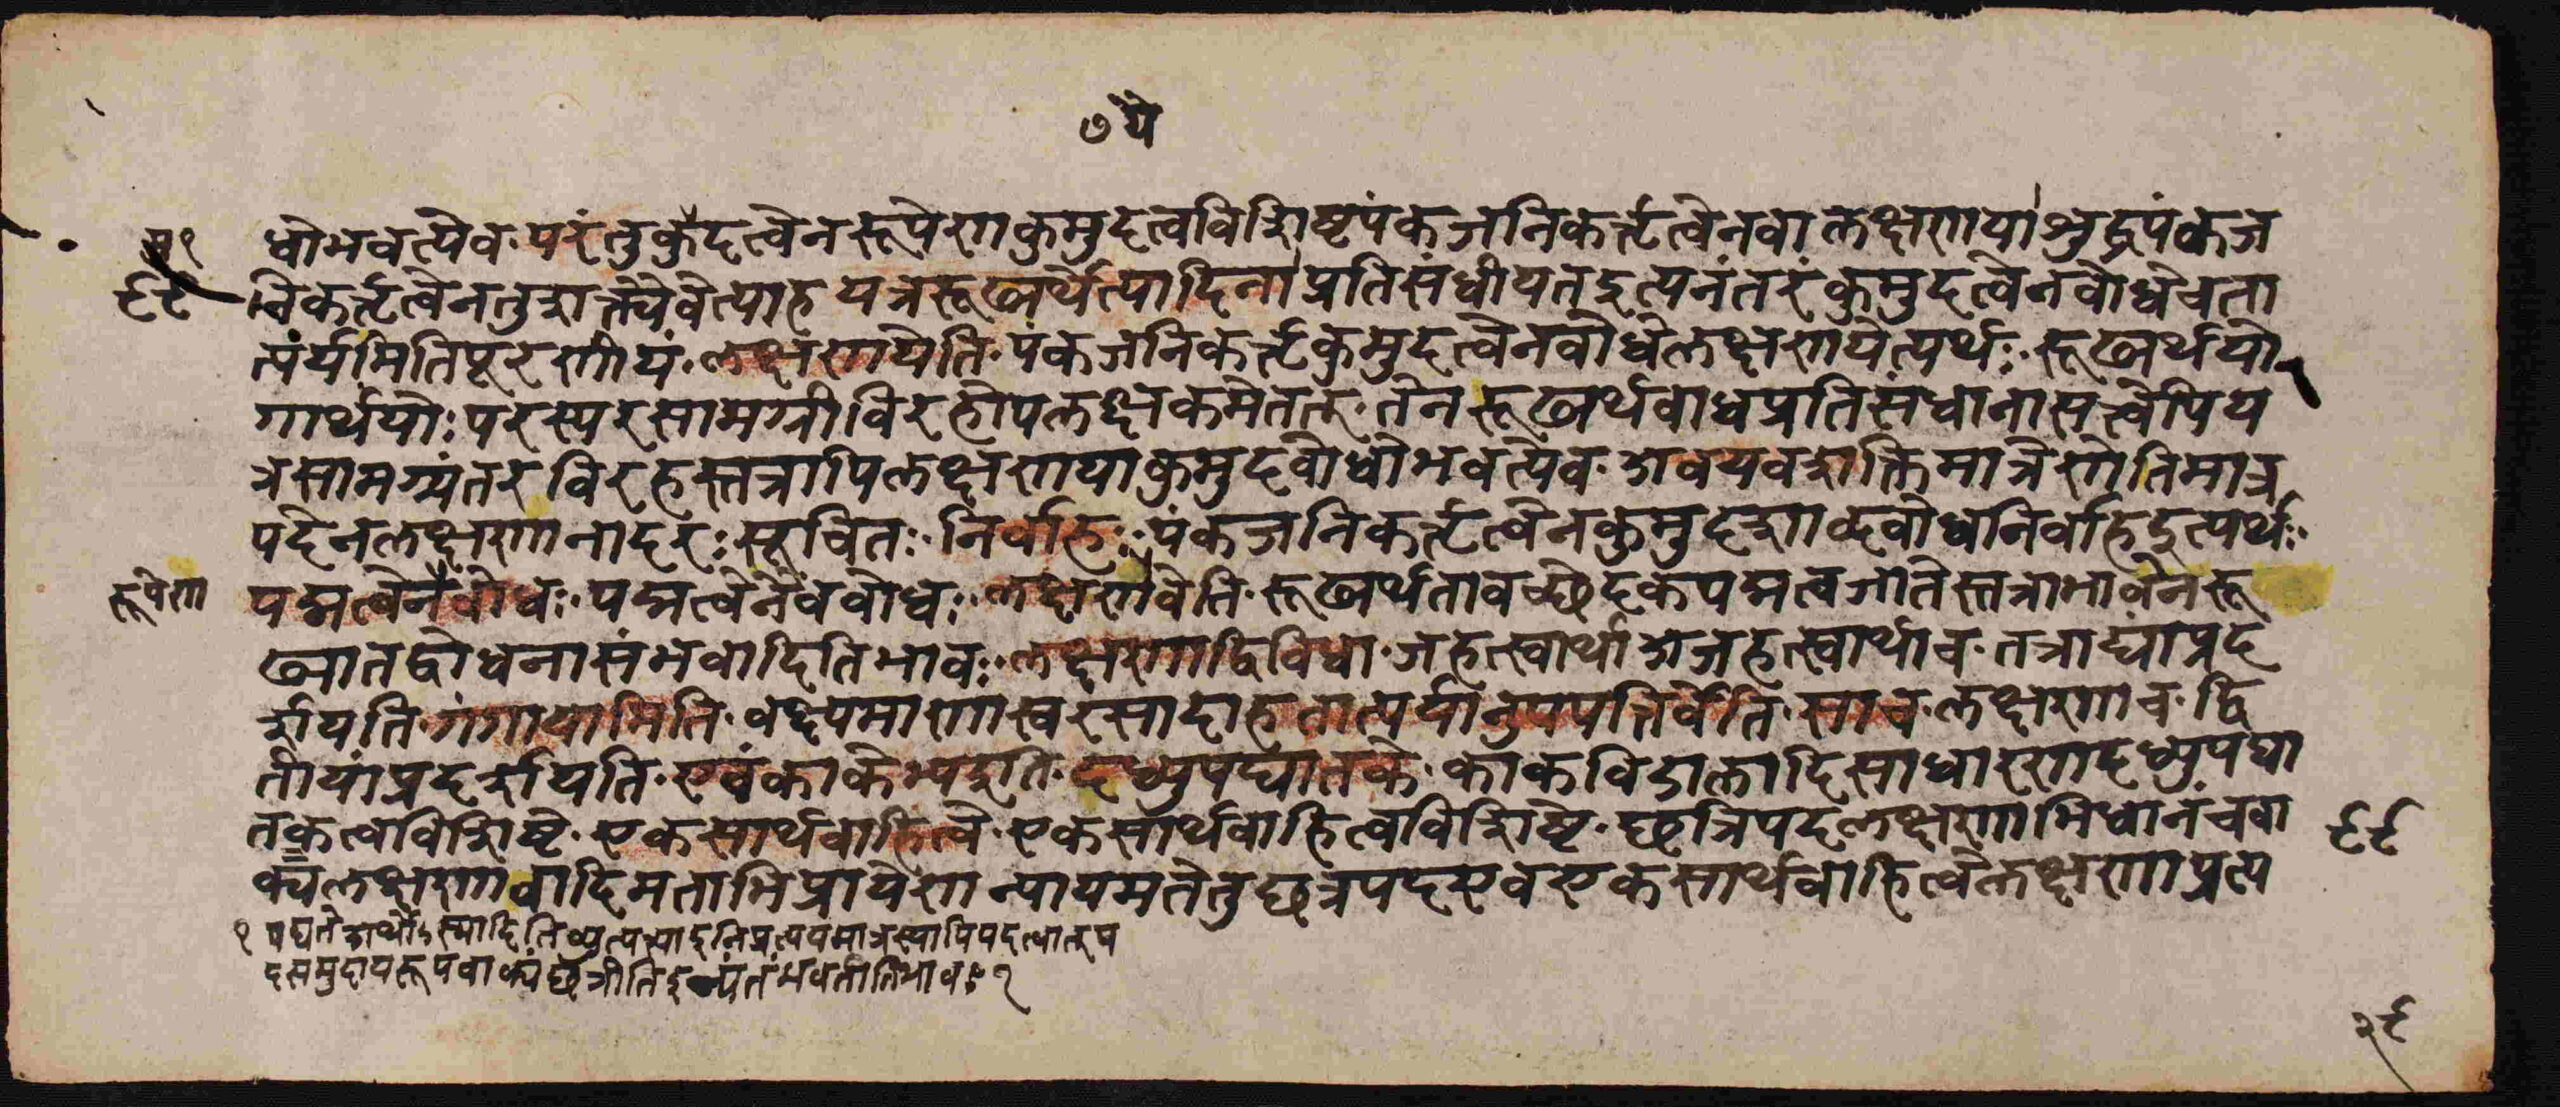 ७ ये
धोभवत्येव परंतुकुमुदत्वेनरूपेणकुमुदत्वविशिष्टपंकजनिकर्तृत्वेनवालक्षणया शुद्धपंकज
निकर्तृत्वेनतुशक्त्यैवेत्याह यत्ररूढ्यर्थेत्यादिना प्रतिसंधीयतइत्यनंतरंकुमुदत्वेनबोधेचता
त्पर्यमितिपूरणीयं लक्षणयेति पंकजनिकर्तृकुमुदत्वेनबोधेलक्षणयेत्यर्थः रूढ्यर्थयो
गार्थयोः परस्परसामग्रीविरहोपलक्षकमेतत् तेनरूढ्यर्थबाधप्रतिसंधानासत्त्वेपिय
त्रसामग्र्यंतरविरहस्तत्रापिलक्षणयाकुमुदबोधोभवत्येव अवयवशक्तिमात्रेणेतिमात्र
पदेनलक्षणानादरः सूचितः निर्वाहः पंकजनिकर्तृत्वेनकुमुदशाब्दबोधनिर्वाहइत्यर्थः
रूपेण
पद्मत्वेनबोधः पद्मत्वेनैवबोधः लक्षणैवेति रूढ्यर्थतावच्छेदकपद्मत्वजातेस्तत्राभावेनरू
ढ्यातद्बोधनासंभवादितिभावः लक्षणाद्विविधा जहत्स्वार्थाअजहत्स्वार्थाच तत्राद्यांप्रद
र्शयति गंगायामिति वक्ष्यमाणास्वरसादाह तात्पर्यानुपपत्तिर्वेति साच लक्षणाच द्वि
तीयांप्रदर्शयति एवंकाकेभ्यइति दध्युपघातके काकविडालादिसाधारणदध्युपघा
तकत्वविशिष्टे एकसार्थवाहित्वे एकसार्थवाहित्वविशिष्टे छत्रिपदलक्षणाभिधानंचवा
क्यलक्षणावादिमताभिप्रायेण न्यायमतेतुछत्रपदएवएकसार्थवाहित्वेलक्षणाप्रत्य
१ पद्यतेअर्थोऽस्मादितिव्युत्पत्त्याइनिप्रत्ययमात्रस्यापिपदत्वात्प
दसमुदायरूपवाक्यंछत्रीतिइन्यंतंभवतीतिभावः १
२९